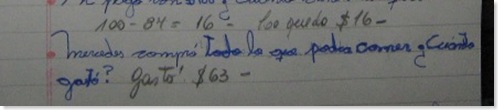 100 - 84 = 16 - Les queda $16 -
• Mercedes compró todo lo que podía comer ¿Cuánto
gastó? Gastó $63 -